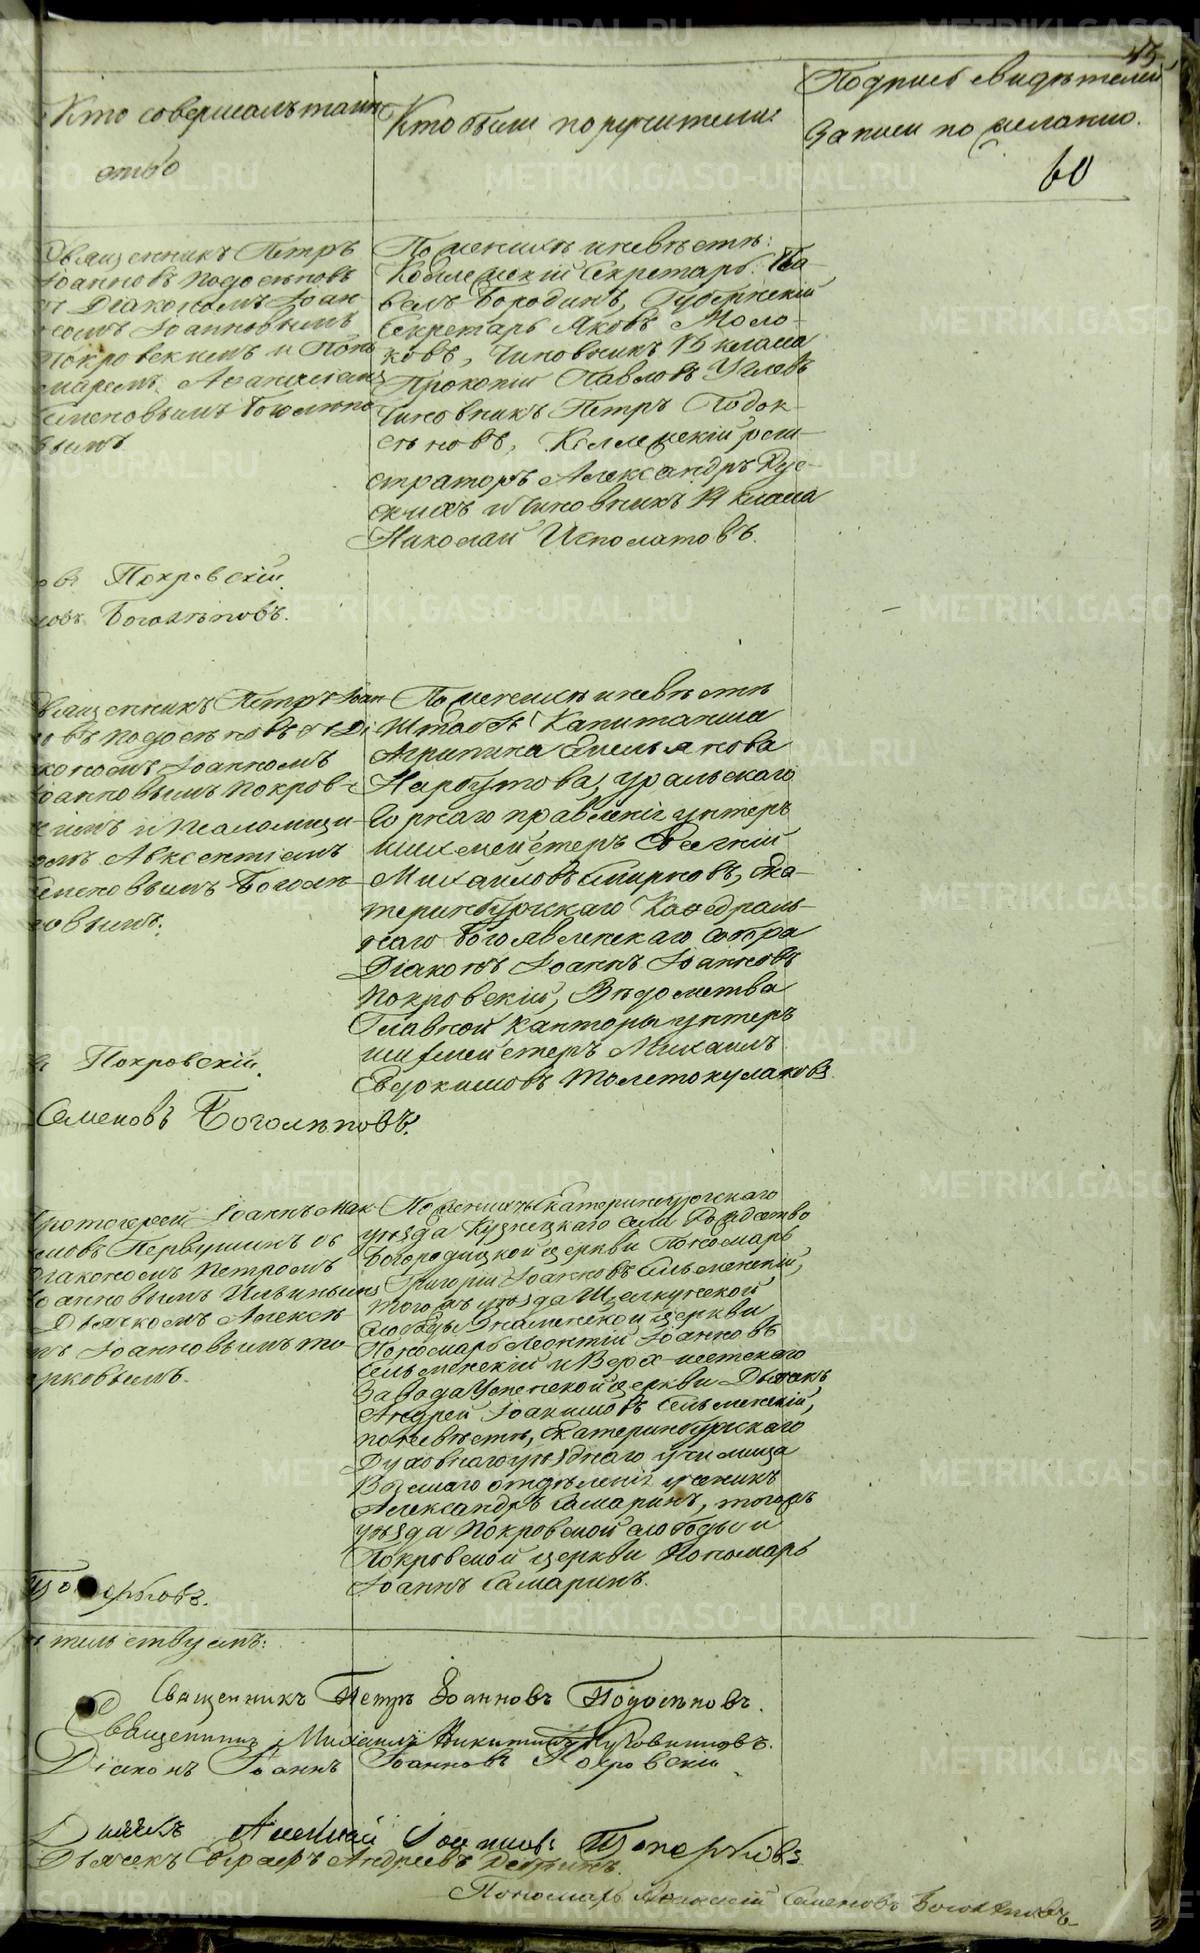 45
Кто совершалъ таин
ство
Кто были поручители
Подпись свидѣтелей
записи по желанію.
60
Священникъ Петръ
Іоанновъ Подосѣновъ
съ Діакономъ Іоан
номъ Іоанновымъ
Покровскимъ и Поно
маремъ
Семеновымъ Боголѣпо
вымъ
овъ Покровскій.
новъ Боголѣповъ.
По женихѣ и невѣстѣ:
Коллежскій Секретарь Па-
велъ Бородинъ, Губернскій
Секретарь Яковъ Моло-
ковъ, Чиновникъ класса
Прокопій Павловъ Углевъ
Чиновникъ Петръ Подок-
сѣновъ, Коллежскій реги-
страторъ Александръ Рус-
скихъ и Чиновникъ 14 класса
Николай Исполатовъ.
Священникъ Петръ Іоан
новъ Подосѣновъ съ Ді
акономъ Іоанномъ
Іоанновымъ Покров-
скимъ и Псаломщи-
комъ Авксентіемъ
Семеновымъ Боголѣ-
повымъ.
Покровскій.
Семеновъ Боголѣповъ.
По женихѣ и невѣстѣ
Штабсъ Капитанша
Агрипина Емельянова
Нарбутова, уральскаго
Горнаго правленія унтеръ
шихмейстеръ Евгеній
Михайловъ Смирновъ, Ека-
теринбургскаго Кафедраль-
наго Богоявленскаго собора
Діаконъ Іоаннъ Іоанновъ
Покровскій, Вѣдомства
Главной Канторы унтеръ
шихмейстеръ Михаилъ
Евдокимовъ Толстокулаковъ.
Протоіерей Іоаннъ Мак
симовъ Первушинъ съ
Діакономъ Петромъ
Іоанновымъ Ильинымъ
Дьячкомъ Алексѣ
емъ Іоанновымъ То
порковымъ.
Топорковъ.
По женихѣ Екатеринбургскаго
уѣзда Кузнецкаго села Рождество
Богородицкой церкви Пономарь
Григорій Іоанновъ Сельменскій,
того жъ уѣзда Щелкунской
слободы Знаменской церкви
Пономарь Леонтій Іоанновъ
Сельменскій и Верхъ-исетскаго
завода Успенской церкви Дьячекъ
Андрей Іоакимовъ Сельменскій,
по невѣстѣ, Екатеринбургскаго
Духовнаго уѣзднаго училища
Высшаго отдѣленія ученикъ
Александръ Самаринъ, тогожъ
уѣзда Покровской слободы и
Покровской церкви Пономарь
Іоаннъ Самаринъ.
тельствуемъ:
Священникъ Петръ Іоанновъ Подосѣновъ.
Священникъ Михаилъ Никитинъ
Діаконъ Іоаннъ Іоанновъ Покровскій
Дьячекъ Алексѣй Іоанновъ Топорковъ
Дьячекъ Андреевъ
Пономарь Семеновъ Боголѣповъ
METRIKI.GASO-URAL.RU